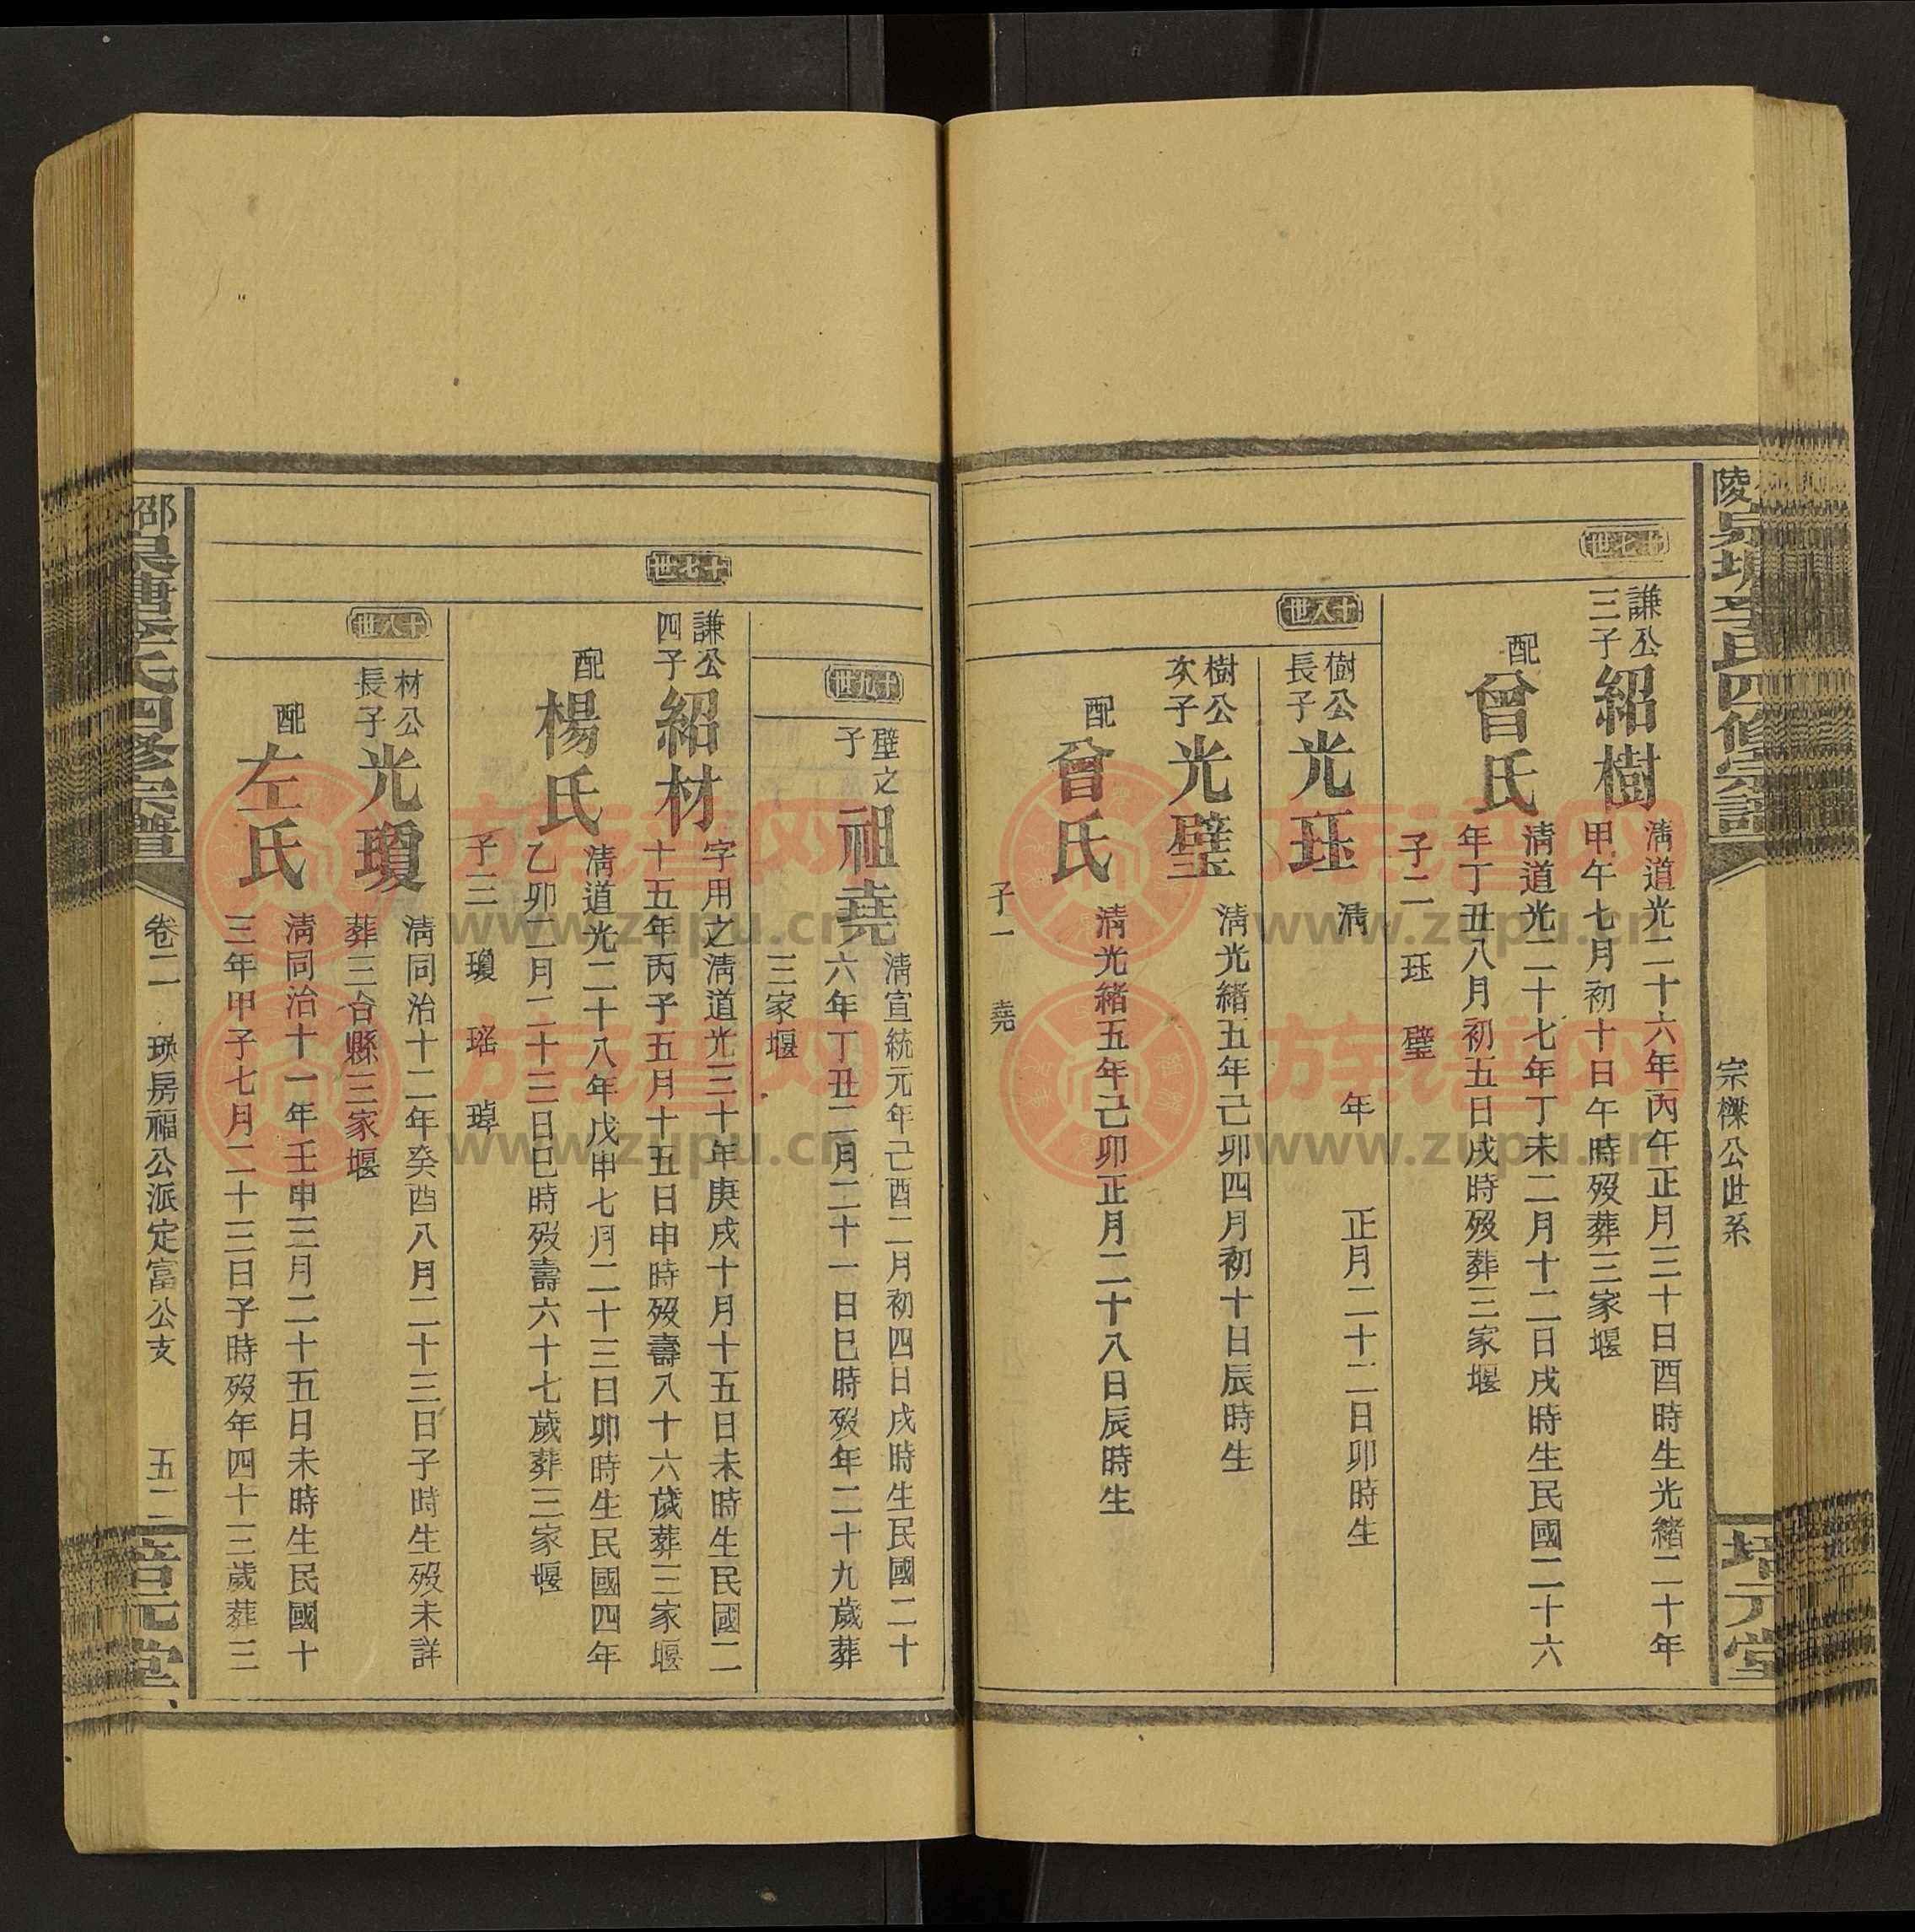 宗檪公世系
培元堂
十七世
謙公
三子
紹樹
清道光二十六年丙午正月三十日酉時生光緒二十年
甲午七月初十日午時歿葬三家堰
配
曾氏
清道光二十七年丁未二月十二日戌時生民國二十六
年丁丑八月初五日戌時歿葬三家堰
子二 珏 璧
十八世
樹公
長子
光珏
清 年 正月二十二日卯時生
樹公
次子
光璧
清光緒五年己卯四月初十日辰時生
配
曾氏
清光緒五年己卯正月二十八日辰時生
子一 堯
十九世
璧之
子
祖堯
清宣統元年己酉二月初四日戌時生民國二十
六年丁丑二月二十一日巳時歿年二十九歲葬
三家堰
十七世
謙公
四子
紹材
字用之清道光三十年庚戌十月十五日未時生民國二
十五年丙子五月十五日申時歿壽八十六歲葬三家堰
配
楊氏
清道光二十八年戊申七月二十三日卯時生民國四年
乙卯二月二十三日巳時歿壽六十七歲葬三家堰
子三 瓊 瑤 璋
十八世
材公
長子
光瓊
清同治十二年癸酉八月二十三日子時生歿未詳
葬三合縣三家堰
配
左氏
清同治十一年壬申三月二十五日未時生民國十
三年甲子七月二十三日子時歿年四十三歲葬三
卷二 瑛房福公派定富公支 五二
族谱网
www.zupu.cn
族谱网
www.zupu.cn
族谱网
www.zupu.cn
族谱网
www.zupu.cn